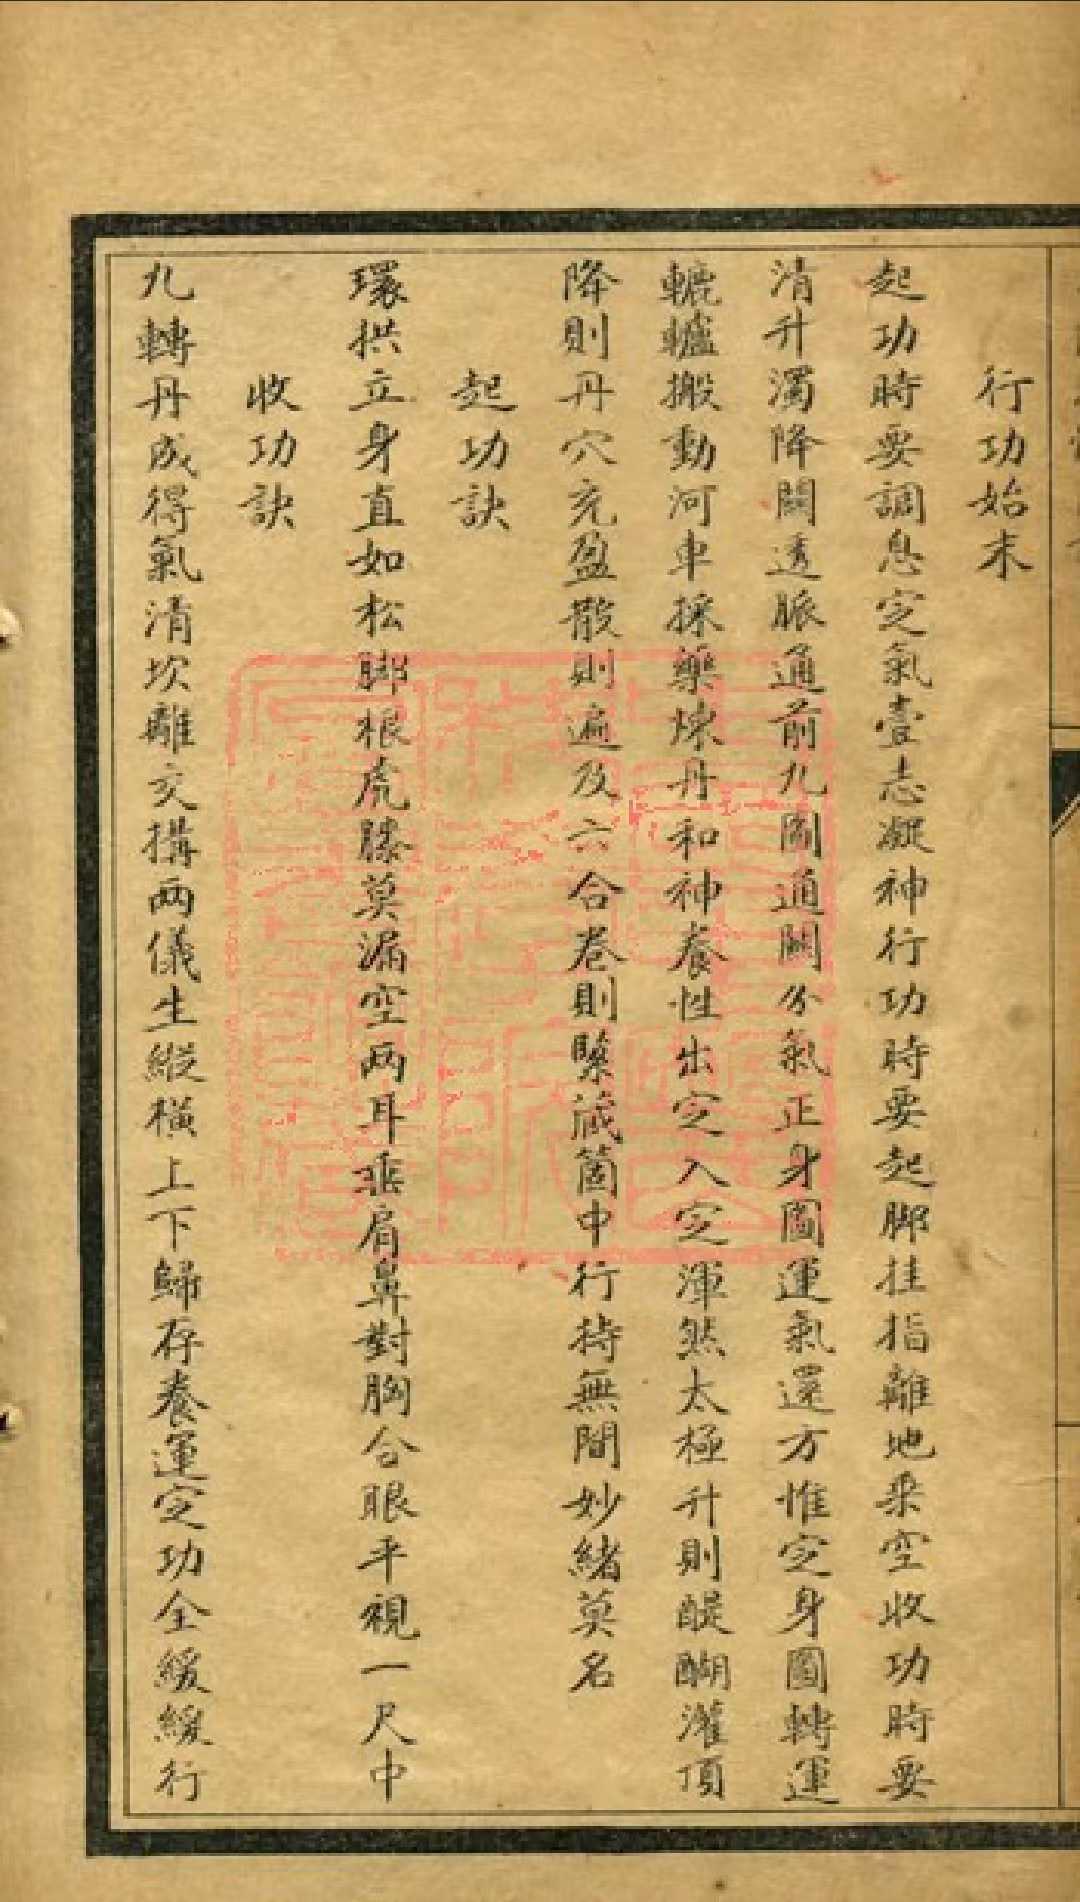 行功始末
起功時要調息定氣壹志凝神行功時要起脚挂指離地乘空收功時要
清升濁降關透脈通前九圖通關分氣正身圖運氣還方惟定身圖轉運
轆轤搬動河車採藥煉丹和神養性出定入定渾然太極升則醍醐灌頂
降則丹穴充盈散則遍及六合卷則緊藏箇中行持無間妙緒莫名
起功訣
環拱立身直如松脚根虎膝莫漏空两耳垂肩鼻對胸合眼平視一尺中
收功訣
九轉丹成得氣清坎離交搆两儀生縱橫上下歸存養運定功全緩緩行